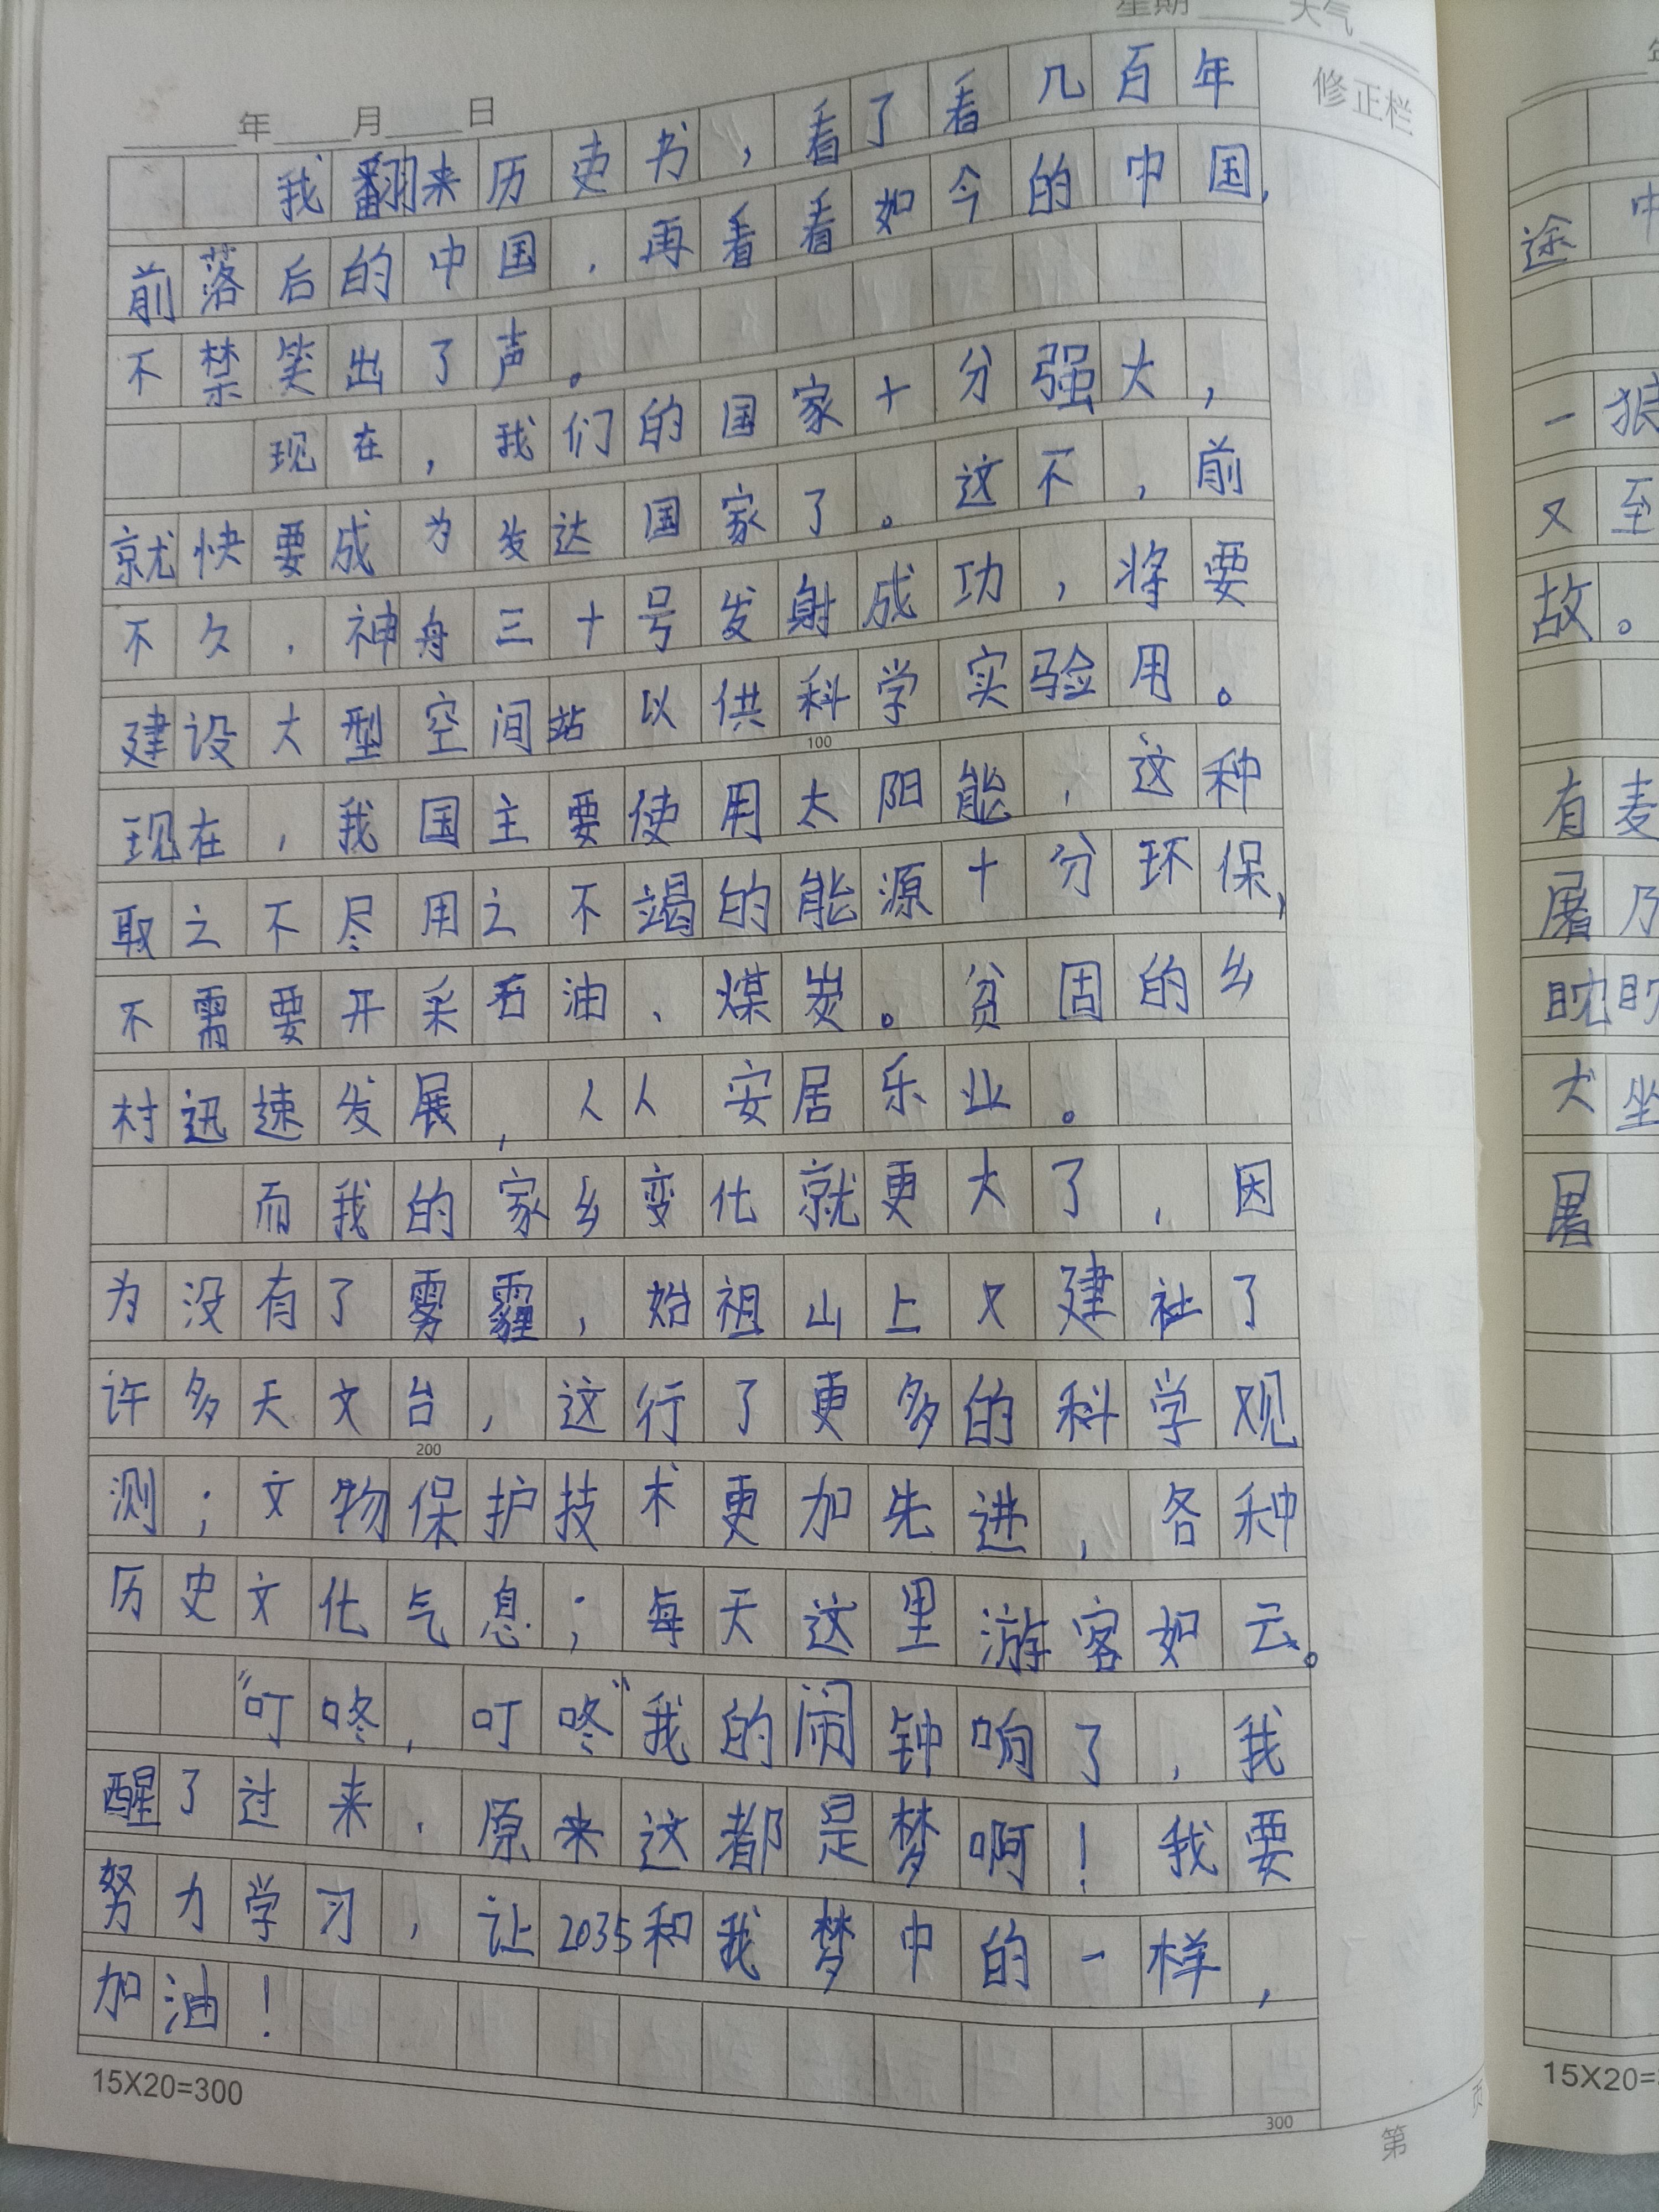 星期 天气
年 月 日
修正栏
我翻来历史书，看了看几百年
前落后的中国，再看看如今的中国，
不禁笑出了声。
现在，我们的国家十分强大，
就快要成为发达国家了。这不，前
不久，神舟三十号发射成功，将要
建设大型空间站以供科学实验用。
100
现在，我国主要使用太阳能，这种
取之不尽用之不竭的能源十分环保，
不需要开采石油、煤炭。贫固的乡
村迅速发展，人人安居乐业。
而我的家乡变化就更大了，因
为没有了雾霾，始祖山上又建祉了
许多天文台，这行了更多的科学观
200
测；文物保护技术更加先进，各种
历史文化气息；每天这里游客如云。
“叮咚，叮咚”我的闹钟响了，我
醒了过来，原来这都是梦啊！我要
努力学习，让2035和我梦中的一样，
加油！
15X20=300
300
第 页
途 中
一狼
又至
故。
有麦
屠乃
眈眈
犬坐
屠
15X20=